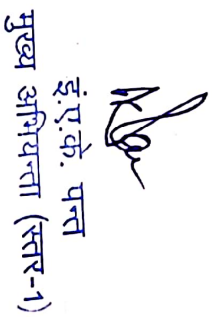 ई.ए.के. पन्त
मुख्य अभियन्ता (स्तर-1)